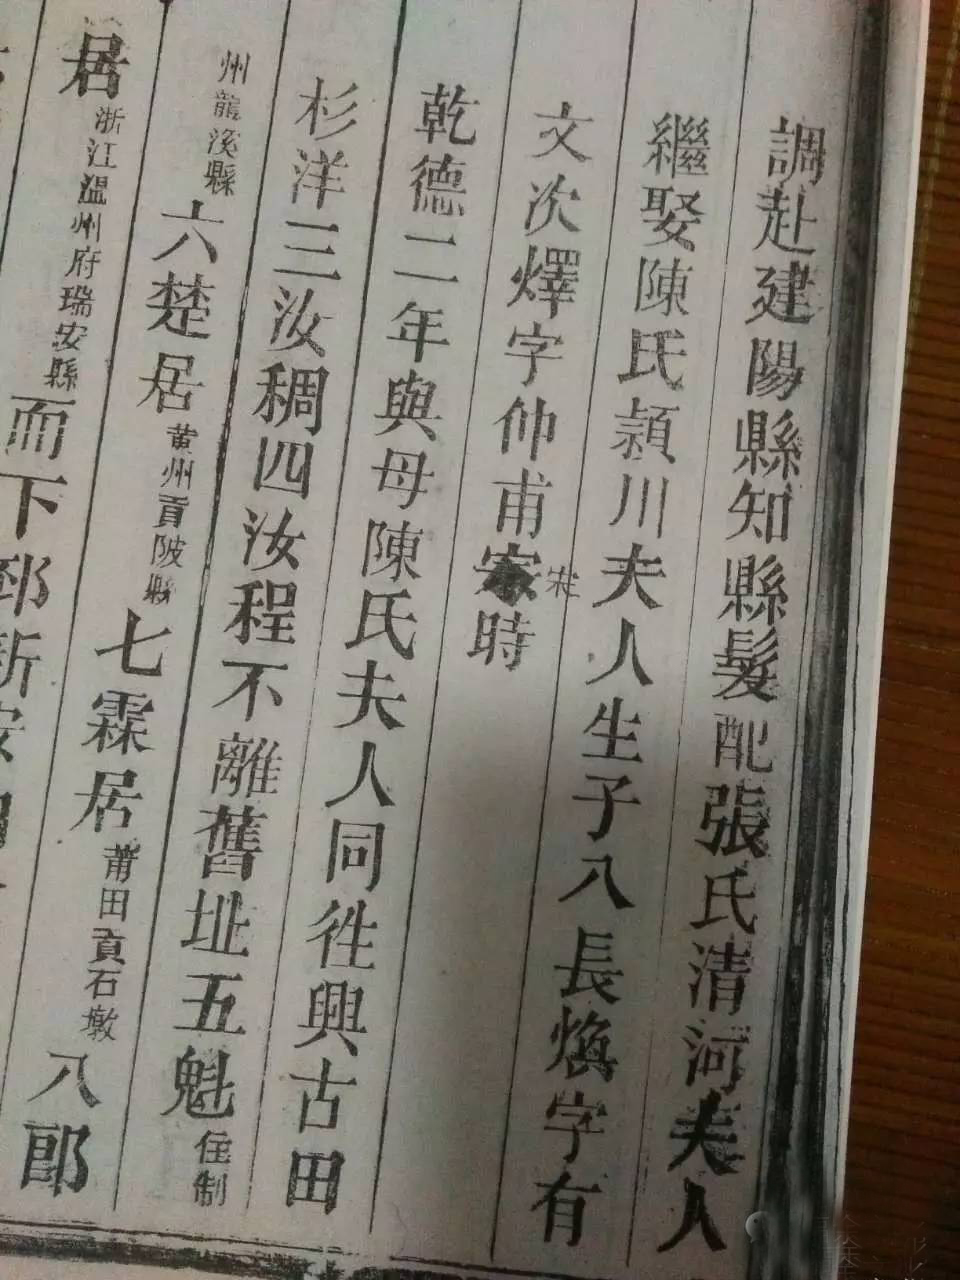 調赴建陽縣知縣髮配張氏清河夫人
繼娶陳氏潁川夫人生子八長煥字有
文次燡字仲甫宋時
乾德二年與母陳氏夫人同徃興古田
杉洋三汝稠四汝程不離舊址五魁住制
州龍溪縣六楚居黄州貢陂縣七霖居莆田貢石墩八郎
居浙江溫州府瑞安縣而下邳新安